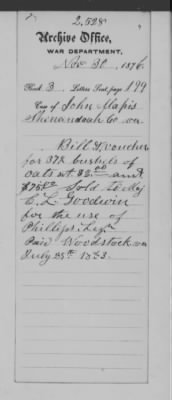 2,528
Archive Office,
WAR DEPARTMENT,
Nov 30, 1876
Book 3 Letters Sent, page 199
Copy of John Mapis
Shenandoah Co Va
Bill & voucher
for 37½ bushels of
oats at $2.00 amt
$75.00 Sold to Maj
C. L. Goodwin
for the use of
Phillips Legn
Paid Woodstock Va
July 25th 1863.